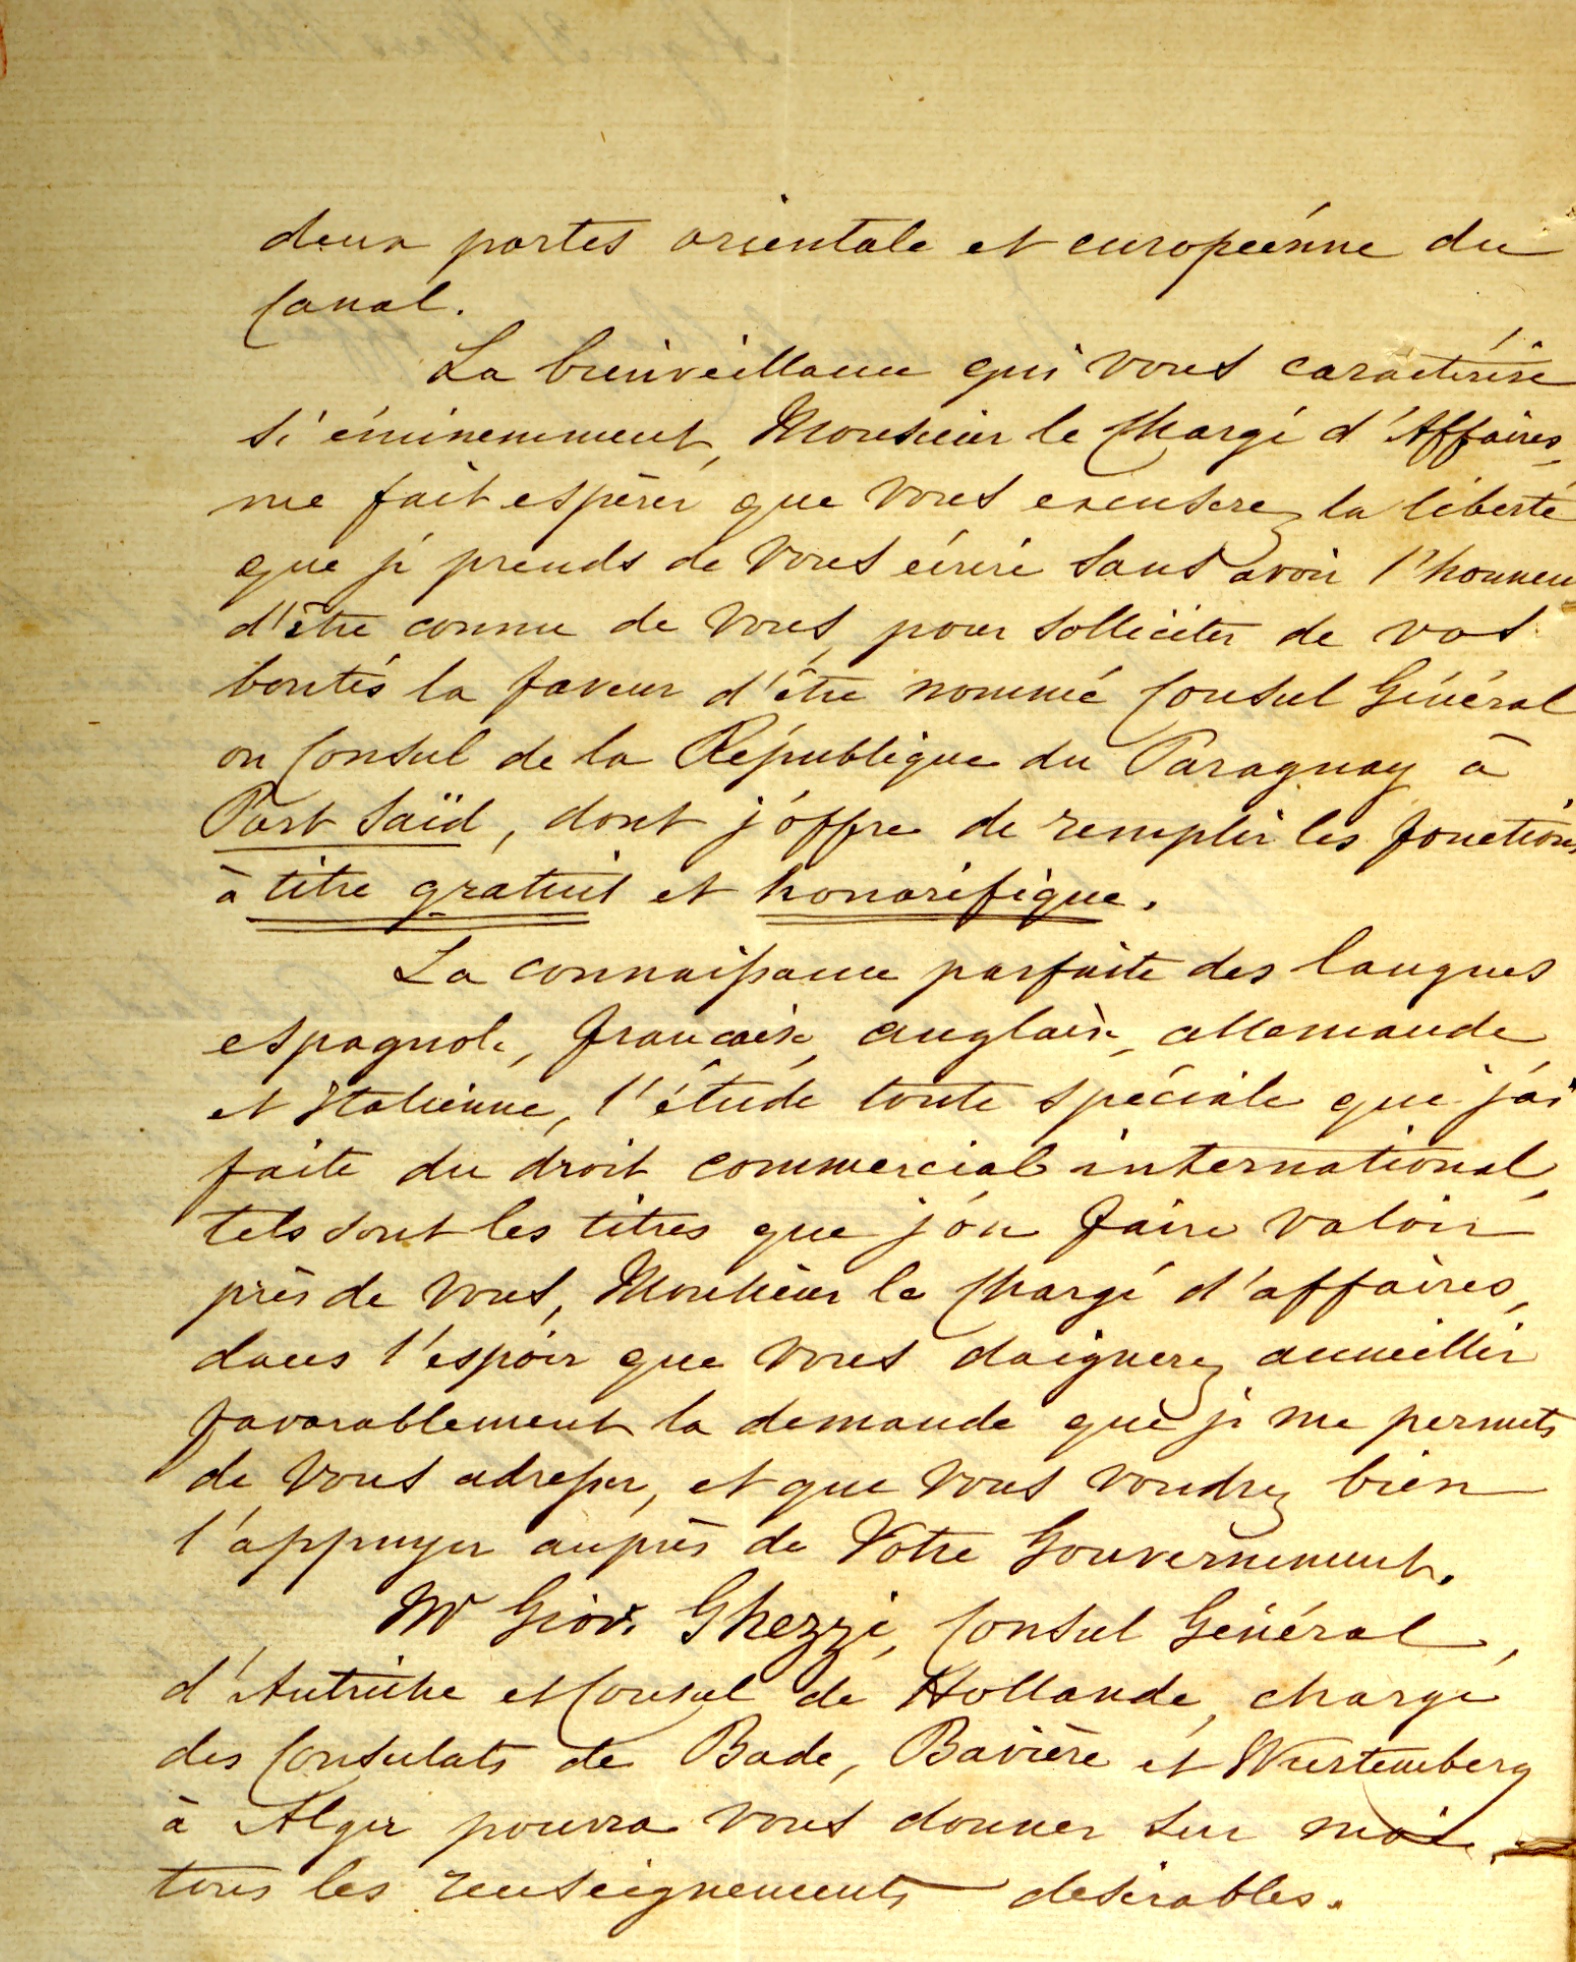 deux portes orientale et européenne du
Canal.
La bienveillance qui vous caractérise
si éminemment, Monsieur le Chargé d'Affaires,
me fait espérer que vous excuserez la liberté
que je prends de vous écrire sans avoir l'honneur
d'être connu de vous, pour solliciter de vos
bontés la faveur d'être nommé Consul Général
ou Consul de la République du Paraguay à
Port Saïd, dont j'offre de remplir les fonctions
à titre gratuit et honorifique.
La connaissance parfaite des langues
espagnole, francaise, anglaise, allemande
et Italienne, l'étude toute spéciale que j'ai
faite du droit commercial international,
tels sont les titres que j'ôse faire valoir
près de vous, Monsieur le Chargé d'affaires,
dans l'espoir que vous daignerez accueillir
favorablement la demande que je me permets
de vous adresser, et que vous voudrez bien
l'appuyer auprès de Votre Gouvernement.
Mr Giov. Ghezzi, Consul Général,
d'Autriche et Consul de Hollande, chargé
des Consulats de Bade, Bavière et Wurtemberg
à Alger pourra vous donner sur moi
tous les renseignements desirables.